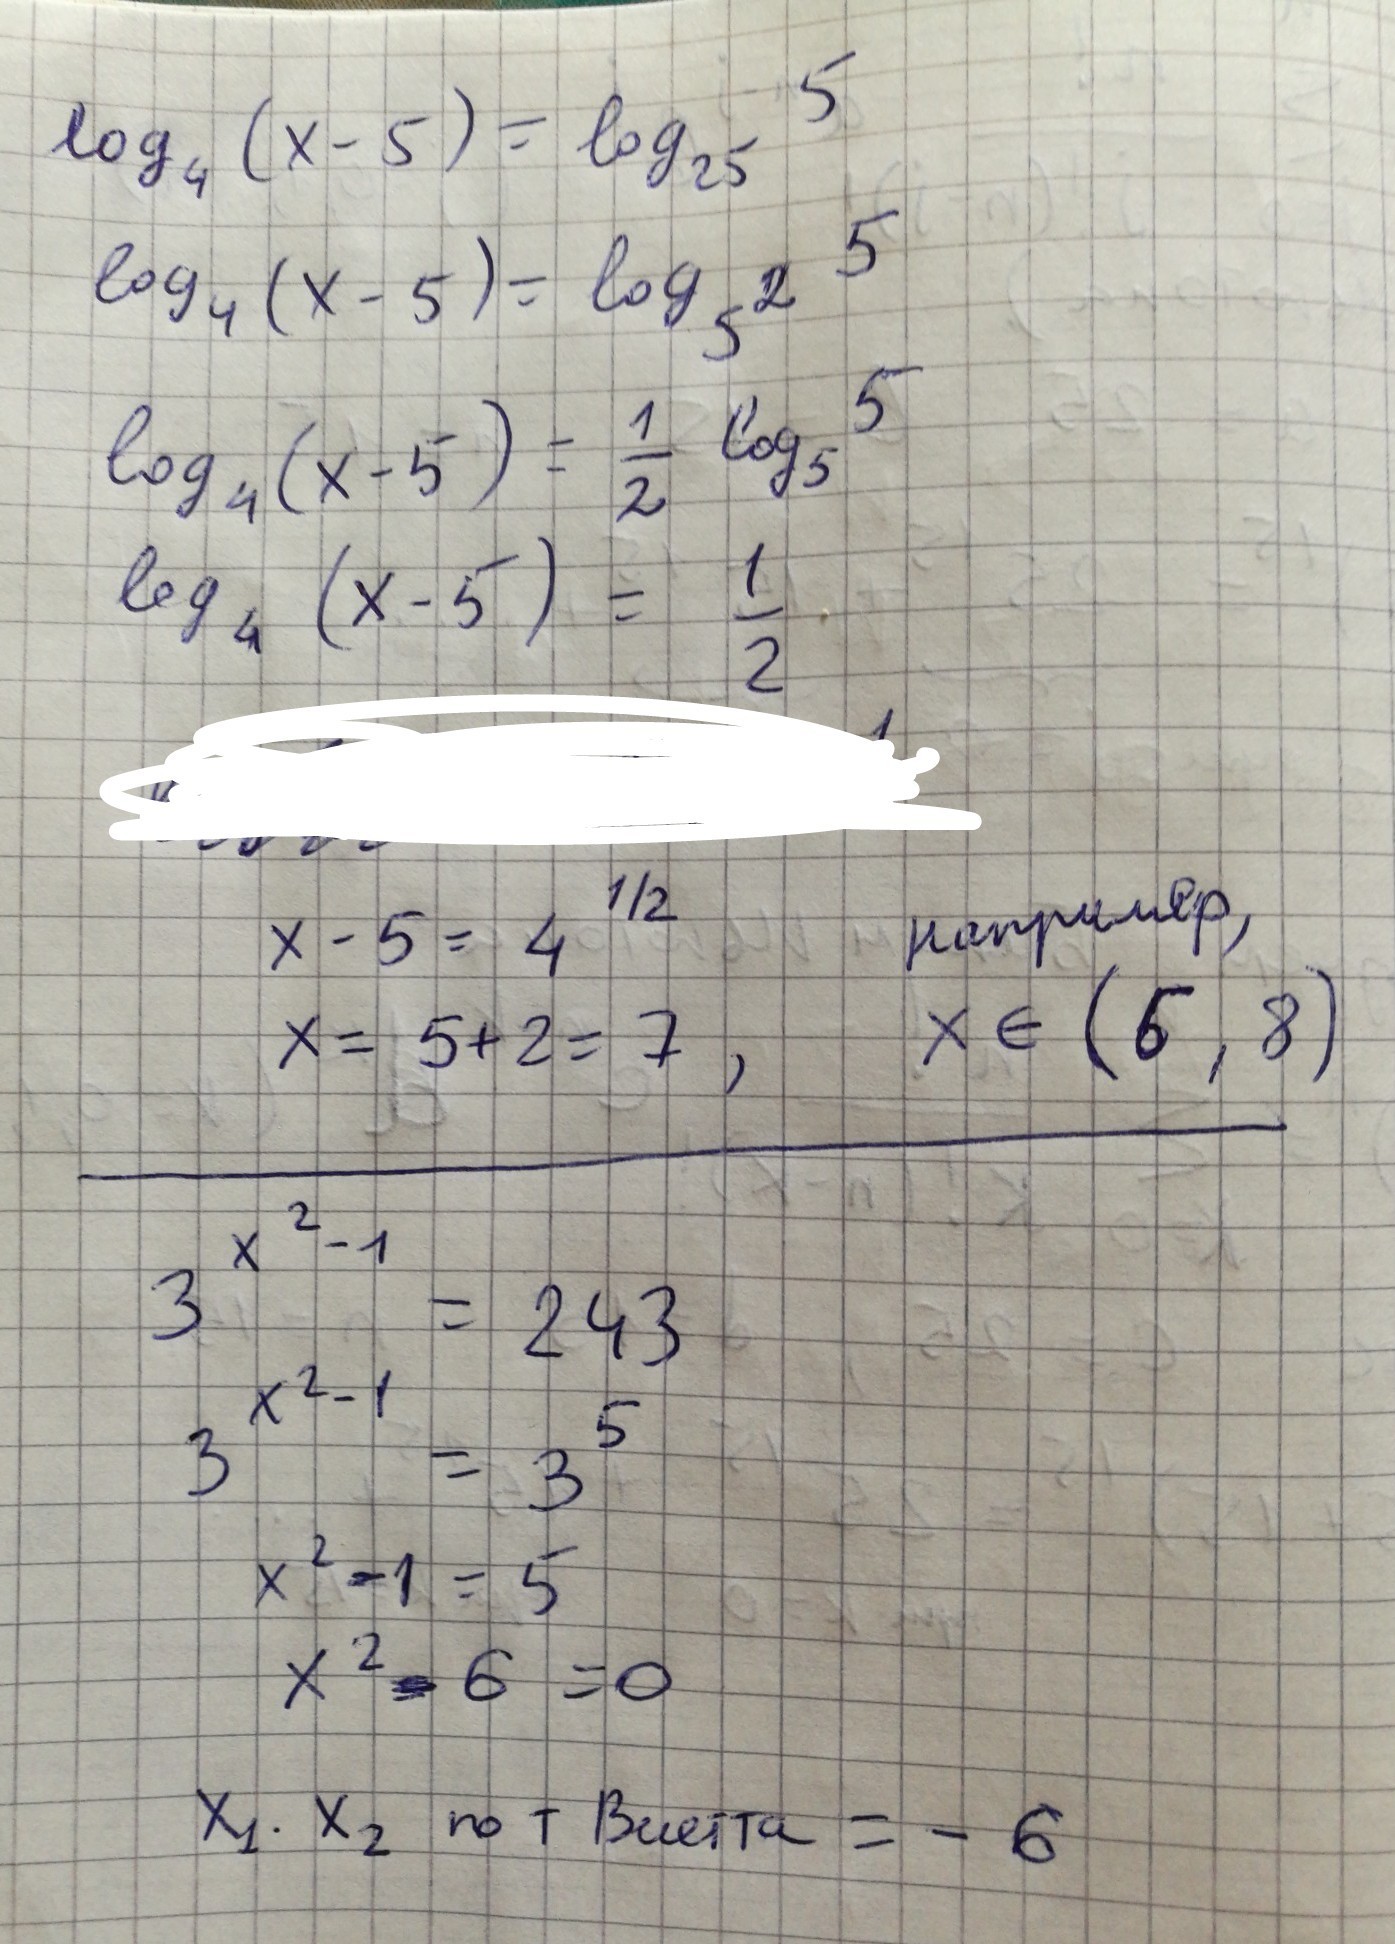 log₄(x-5) = log₂₅ 5
log₄(x-5) = log₅² 5
log₄(x-5) = 1/2 log₅ 5
log₄(x-5) = 1/2
x - 5 = 4^1/2
например,
x = 5+2 = 7, x ∈ (6, 8)
3^x²-1 = 243
3^x²-1 = 3⁵
x²-1 = 5
x² - 6 = 0
x₁ · x₂ по т Виетта = - 6